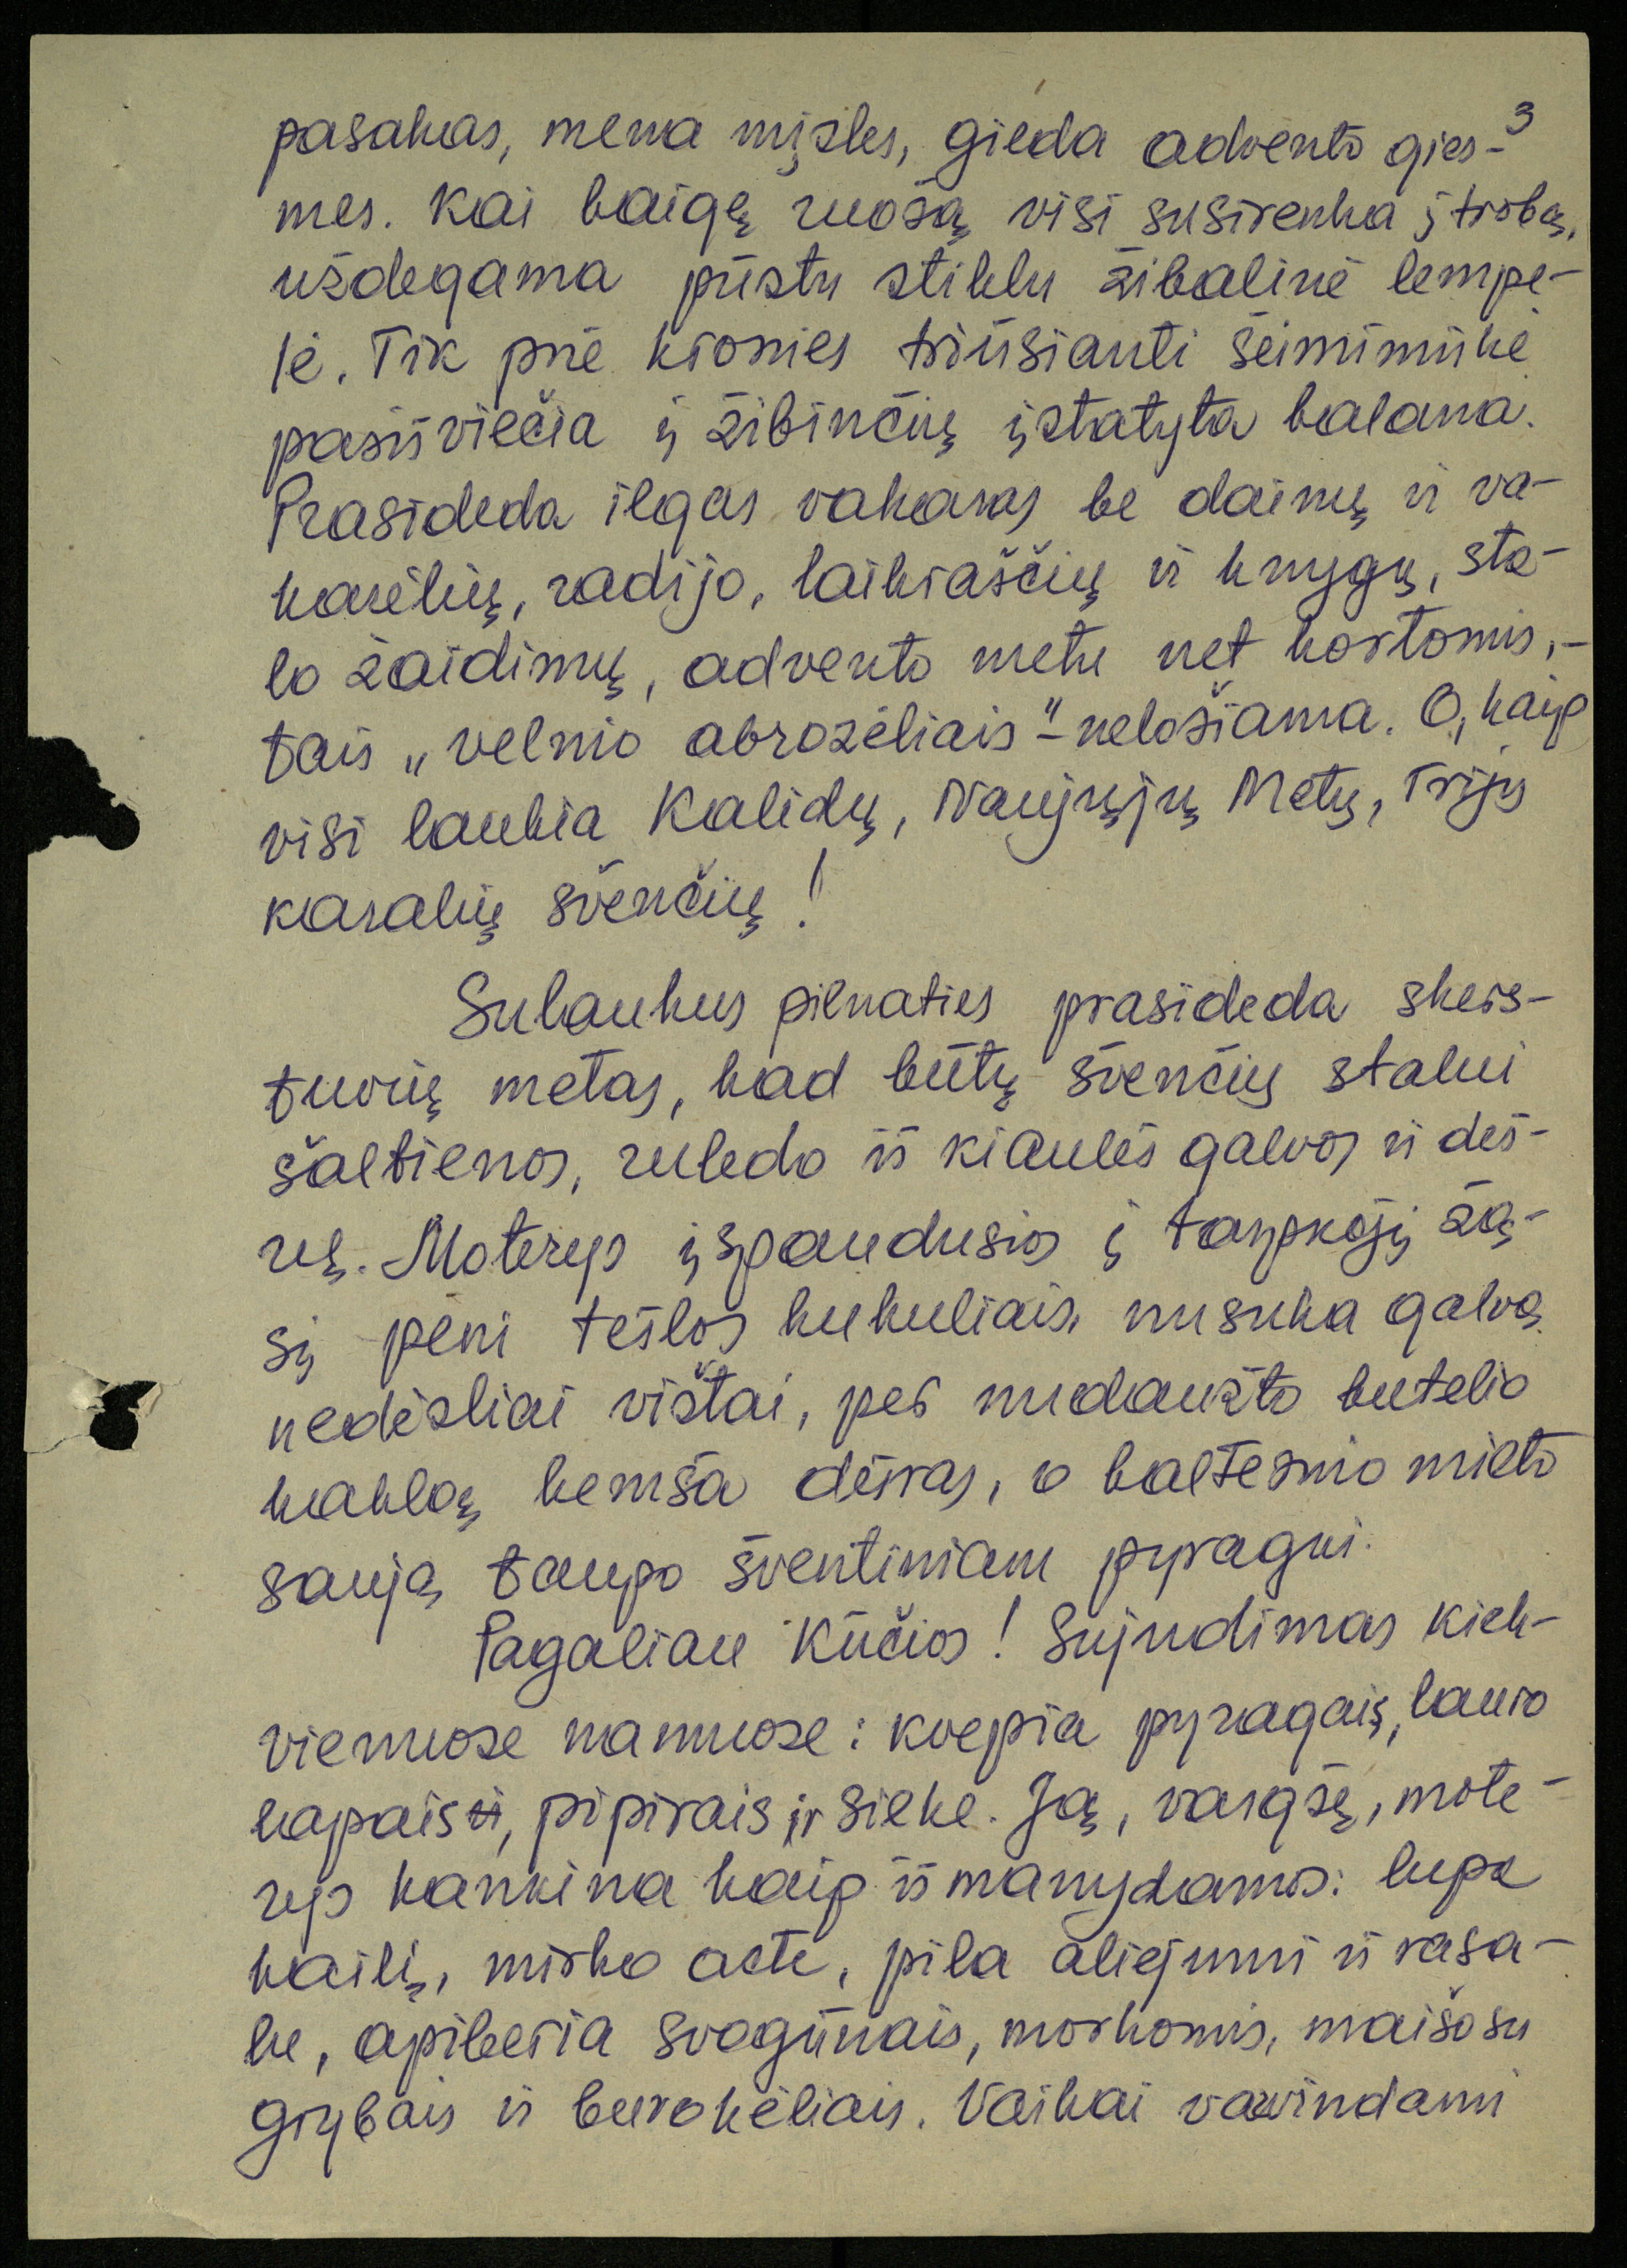 3
pasakas, mena mįsles, gieda advento gies-
mes. Kai baigę ruošą visi susirenka į trobą,
uždegama pūstu stiklu žibalinė lempe-
lė. Tik prie krosnies triūsianti šeimininkė
pasišviečia į žibinčių įstatyta balana.
Prasideda ilgas vakaras be dainų ir va-
karėlių, radijo, laikraščių ir knygų, sta-
lo žaidimų, advento metu net kortomis, -
tais „velnio abrozėliais" - nelošiama. O, kaip
visi laukia Kalėdų, Naujųjų Metų, Trijų
karalių švenčių!
Sulaukus pilnaties prasideda skers-
tuvių metas, kad būtų švenčių stalui
šaltienos, ruledo iš kiaulės galvos ir deš-
rų. Moterys įspaudusios į tarpkojį žą-
sį peni tešlos kukuliais, nusuka galvą
nedėsliai vištai, per nudaužto butelio
kaklą kemša dėšras, o baltesnio mieto
saują taupo šventiniam pyragui.
Pagaliau Kūčios! Sujudimas kiek-
vienuose namuose: kvepia pyragais, lauro
lapais, pipirais ir silke. Ją, vargšę, mote-
rys kankina kaip išmanydamos: lupa
kailį, mirko acte, pila aliejumi ir rasa-
lu, apiberia svogūnais, morkomis, maišo su
grybais ir burokėliais. Vaikai vaxindami